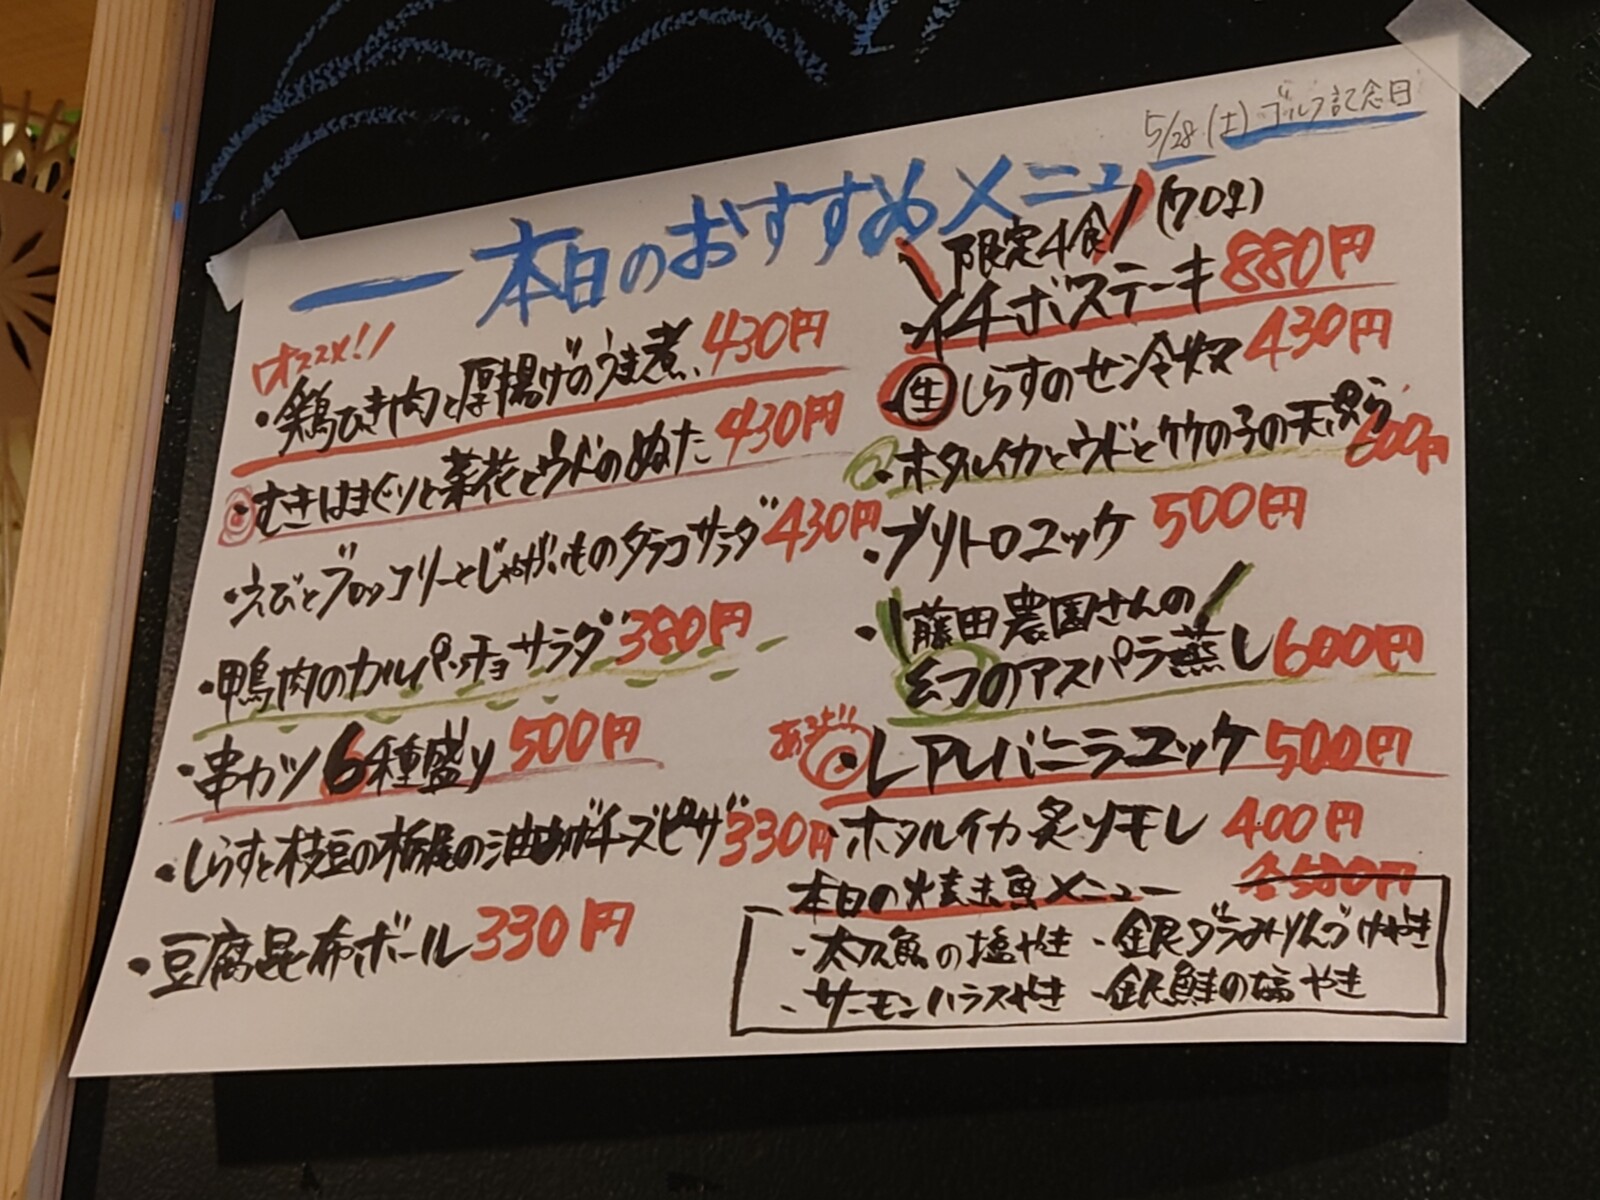 5/28(土)ゴルフ記念日
本日のおすすめメニュー
オススメ!!
・鶏ひき肉と厚揚げのうま煮 430円
・むきはまぐりと菜花とウドのぬた 430円
・えびとブロッコリーとじゃがいものタラコサラダ 430円
・鴨肉のカルパッチョサラダ 380円
・串カツ6種盛り 500円
・しらすと枝豆の栃尾の油あげチーズピザ 330円
・豆腐昆布ボール 330円
限定4食
・イチボステーキ 880円
・生しらすのせ冷奴 430円
・ホタルイカとウドとタケの子の天ぷら 600円
・ブリトロユッケ 500円
・藤田農園さんの
幻つのアスパラ蒸し 600円
あるよ!!
・レアレバニラユッケ 500円
・ホタルイカ炙りモレ 400円
本日の焼き魚メニュー 各580円
・太刀魚の塩やき
・銀ダラみりんづけやき
・サーモンハラスやき
・銀鮭の塩やき